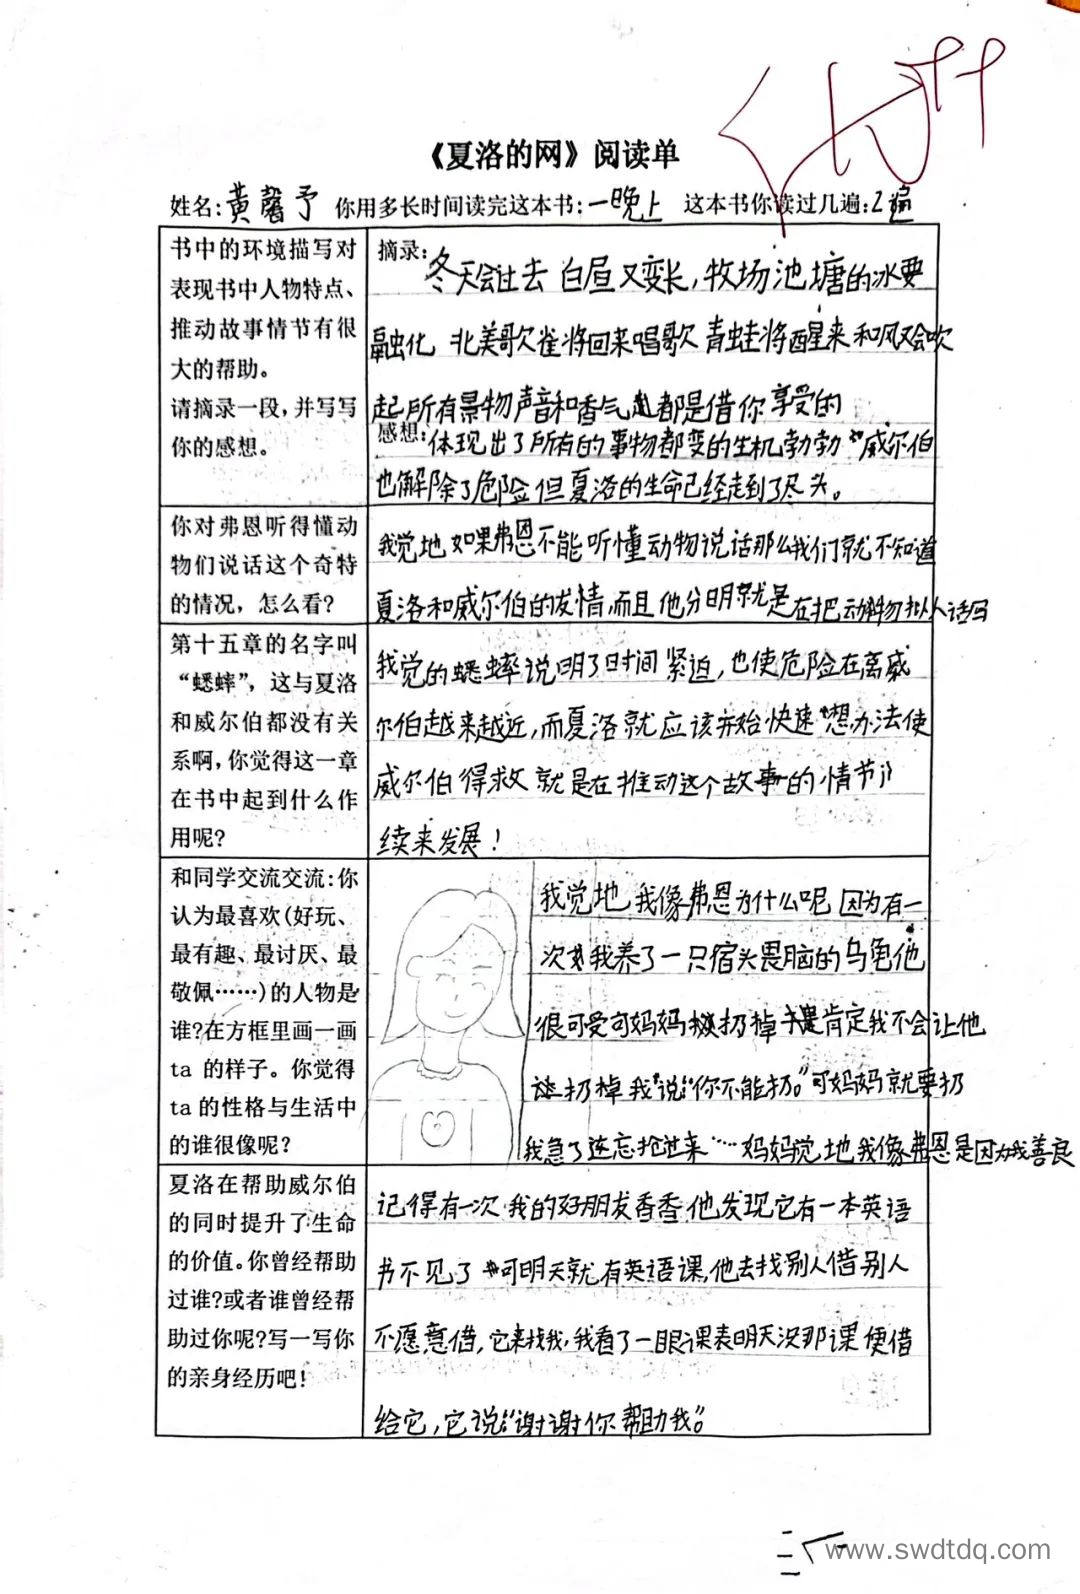 《夏洛的网》阅读单
姓名:黄馨予 你用多长时间读完这本书:一晚上 这本书你读过几遍:2遍
书中的环境描写对
表现书中人物特点、
推动故事情节有很
大的帮助。
请摘录一段,并写写
你的感想。
摘录:
冬天会过去 白昼又变长,牧场池塘的冰要
融化 北美歌雀将回来唱歌 青蛙将醒来 和风又会吹
起 所有景物声音和香气 都是借你享受的
感想:体现出了所有的事物都变的生机勃勃 威尔伯
也解除了危险 但夏洛的生命已经走到了尽头。
你对弗恩听得懂动
物们说话这个奇特
的情况，怎么看?
我觉地如果弗恩不能听懂动物说话那么我们就不知道
夏洛和威尔伯的发情,而且他分明就是在把动物拟人话写
第十五章的名字叫
“蟋蟀”,这与夏洛
和威尔伯都没有关
系啊,你觉得这一章
在书中起到什么作
用呢?
我觉的蟋蟀说明了时间紧迫,也使危险在离威
尔伯越来越近,而夏洛就应该开始快速想办法使
威尔伯得救 就是在推动这个故事的情节
续来发展!
和同学交流交流:你
认为最喜欢(好玩、
最有趣、最讨厌、最
敬佩……)的人物是
谁?在方框里画一画
ta 的样子。你觉得
ta 的性格与生活中
的谁很像呢?
我觉地 我像弗恩为什么呢 因为有一
次 我养了一只宿头畏脑的乌龟他
很可爱可妈妈 扔掉 肯定我不会让他
扔掉 我说:“你不能扔。”可妈妈就要扔
我急了 连忙抢过来……妈妈觉地我像弗恩是因为我善良
夏洛在帮助威尔伯
的同时提升了生命
的价值。你曾经帮助
过谁?或者谁曾经帮
助过你呢?写一写你
的亲身经历吧!
记得有一次,我的好朋友香香,他发现它有一本英语
书不见了 可明天就有英语课,他去找别人借别人
不愿意借,它来找我,我看了一眼课表明天没那课便借
给它,它说:“谢谢你帮助我。”
www.swdtdq.com